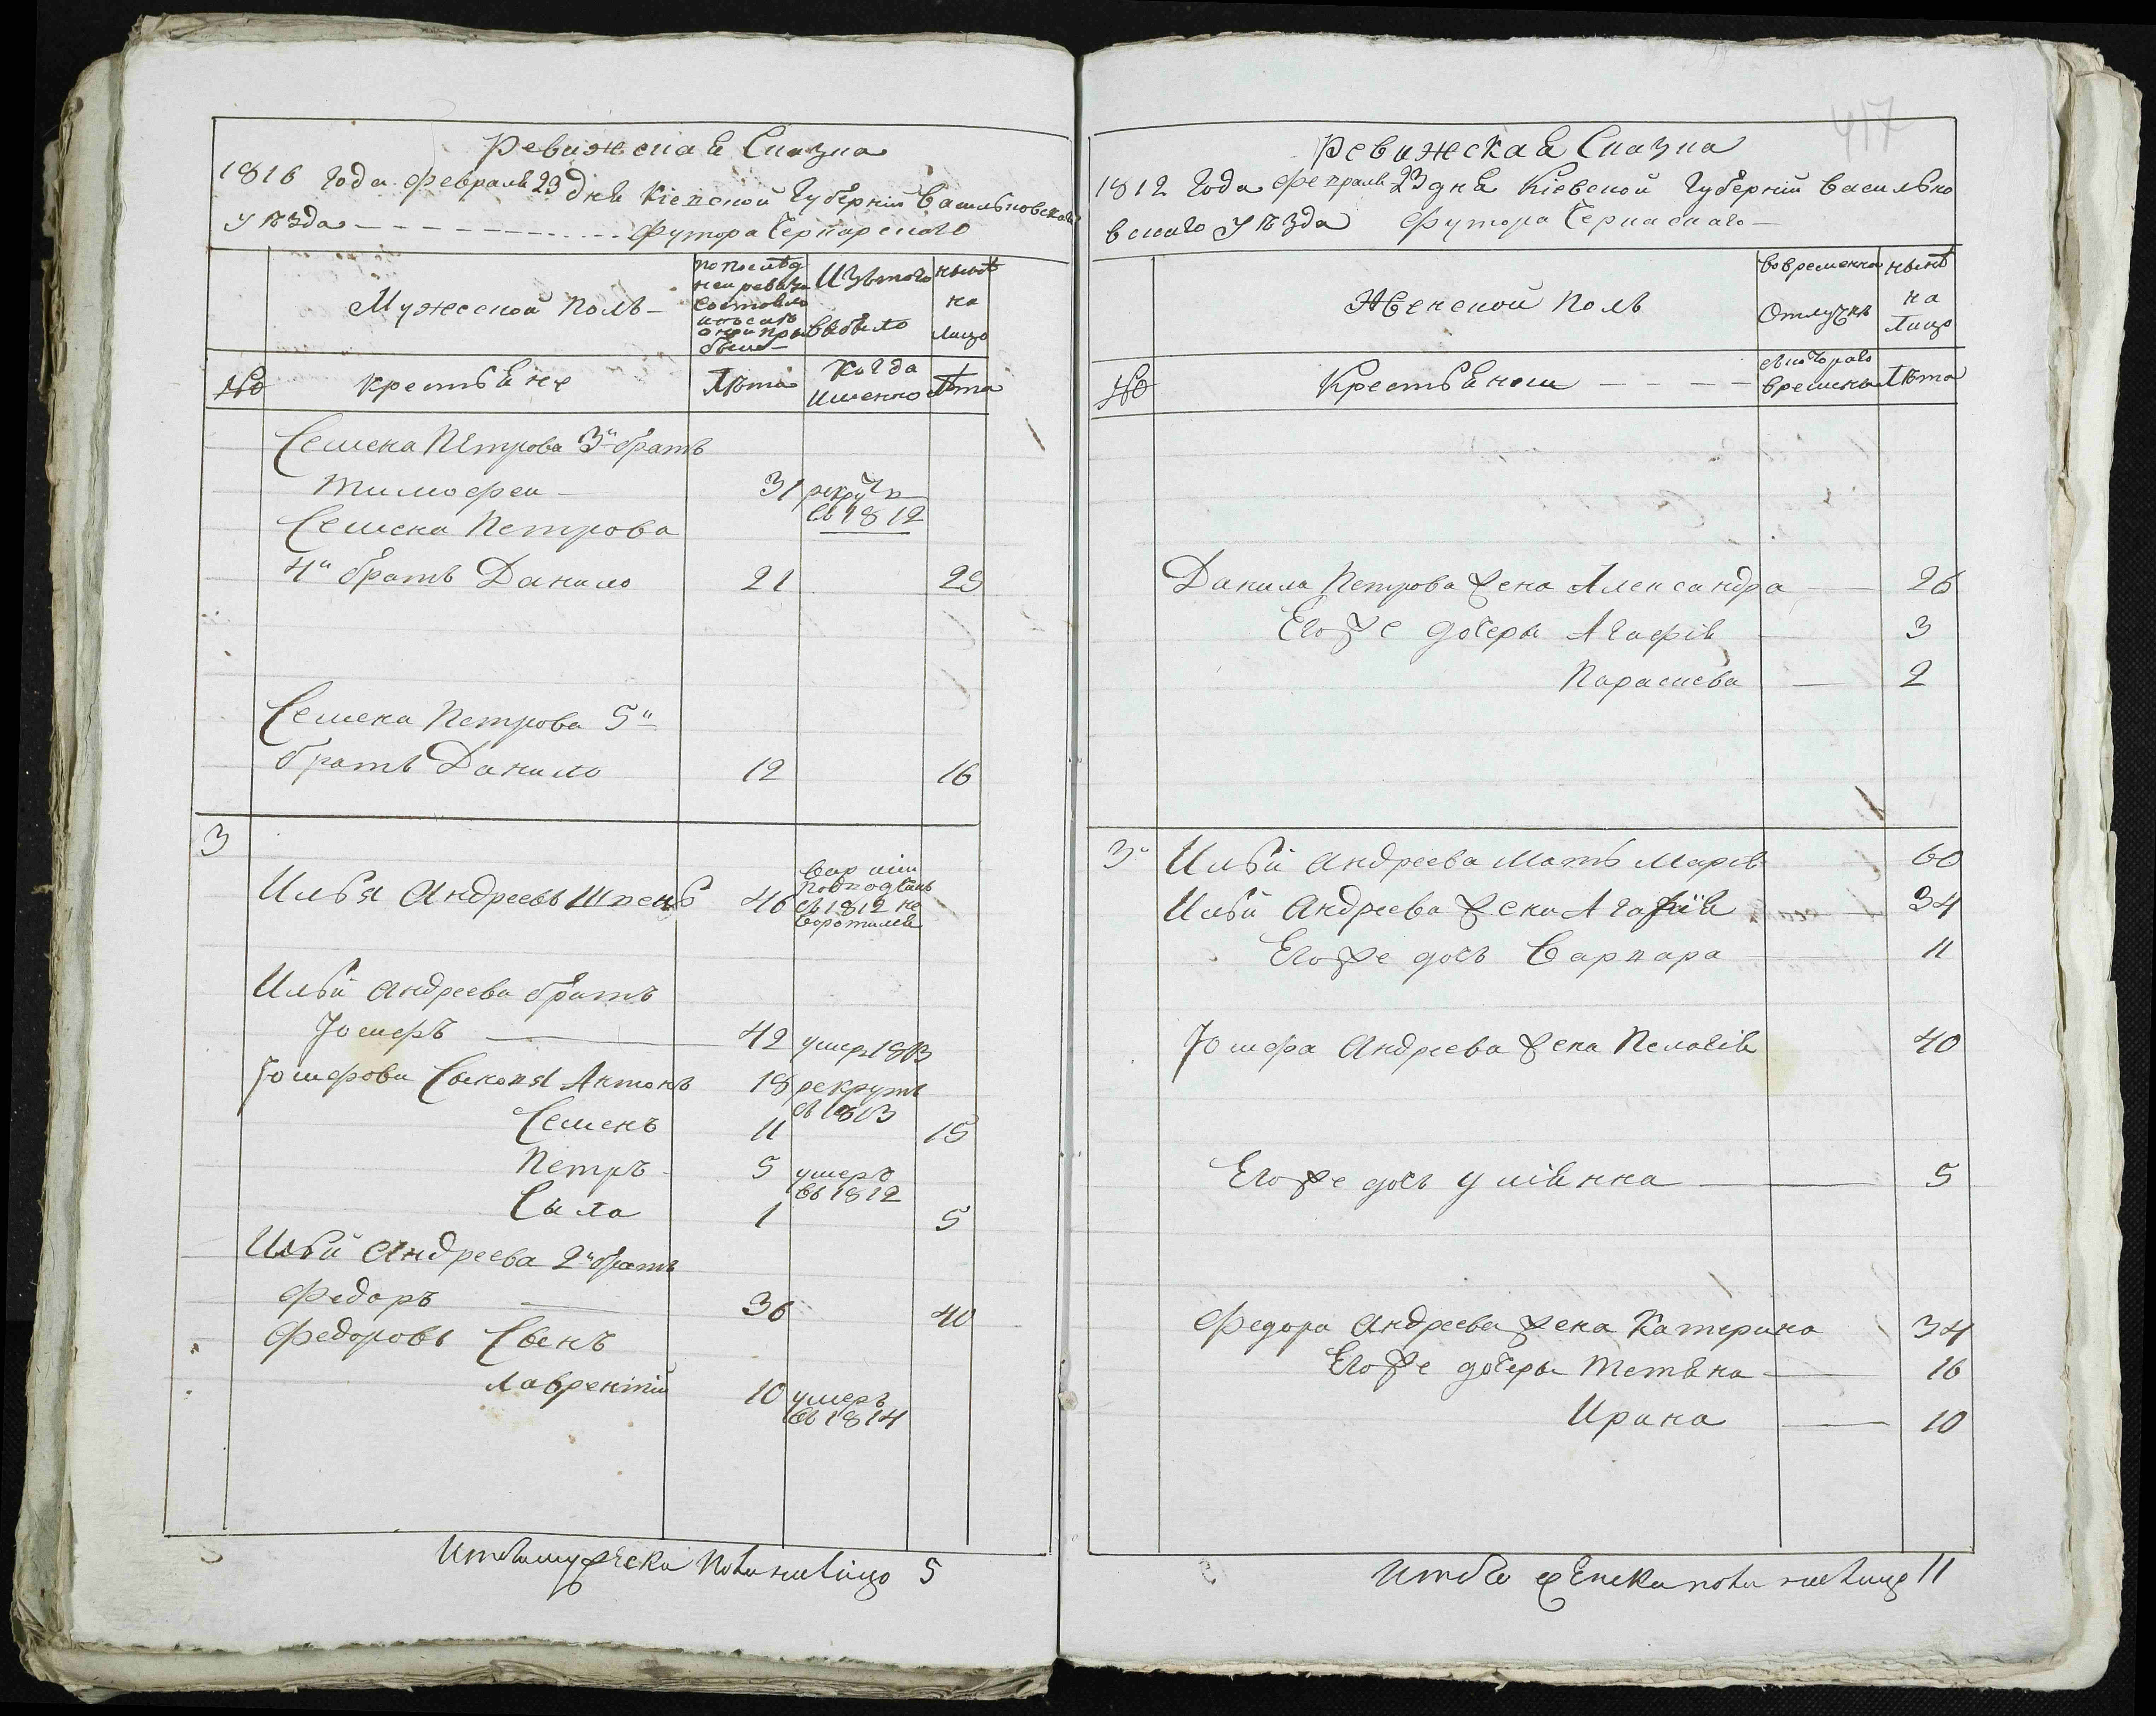 Ревижская Сказка
1816 Года Февраля 23 дня Кіевской Губерніи Васильковскаго
Уѣзда Футора Черкарскаго
Мужеской полъ
по послѣд
ней ревизи
состояло
и после
оной при
было
Изъ того
выбыло
нынѣ
на
лицо
№
крестьяне
Лѣта
Когда
именно
Лѣта
Семена Петрова 3й братъ
Тимофей 31 рекрут
въ 1812
Семена Петрова
4й братъ Данило 21 25
Семена Петрова 5й
братъ Данило 12 16
3
Илья Андреевъ 46
въ 1812 не
воротился
Ильи Андреева братъ
Юшефъ 42 умер 1813
Юшефови Сыновя Антонъ 18 рекрутъ
въ 1813
Семенъ 11 15
Петръ 5 умеръ
въ 1812
Сыла 1 5
Ильи Андреева 2й братъ
Федоръ 36 40
Федоровъ Сынъ
Лаврентій 10 умеръ
въ 1814
Итого мужеска пола на лицо 5
417
Ревижская Сказка
1812 Года Февраля 23 дня Кіевской Губерніи Василько
вскаго Уѣзда Футора Черкаскаго
Женской полъ
во временной
Отлучкѣ
нынѣ
на
лицо
№
Крестьянки
съ котораго
времени
Лѣта
Данила Петрова жена Александра 26
Его же дочери Агафія 3
Параскева 2
3 Ильи Андреева мать Марія 60
Ильи Андреева жена Агафія 34
Его же дочь Варвара 11
Юшефа Андреева жена Пелагія 40
Его же дочь Уліянна 5
Федора Андреева жена Катерина 34
Его же дочеры Тетяна 16
Ирина 10
Итого женска пола на лице 11